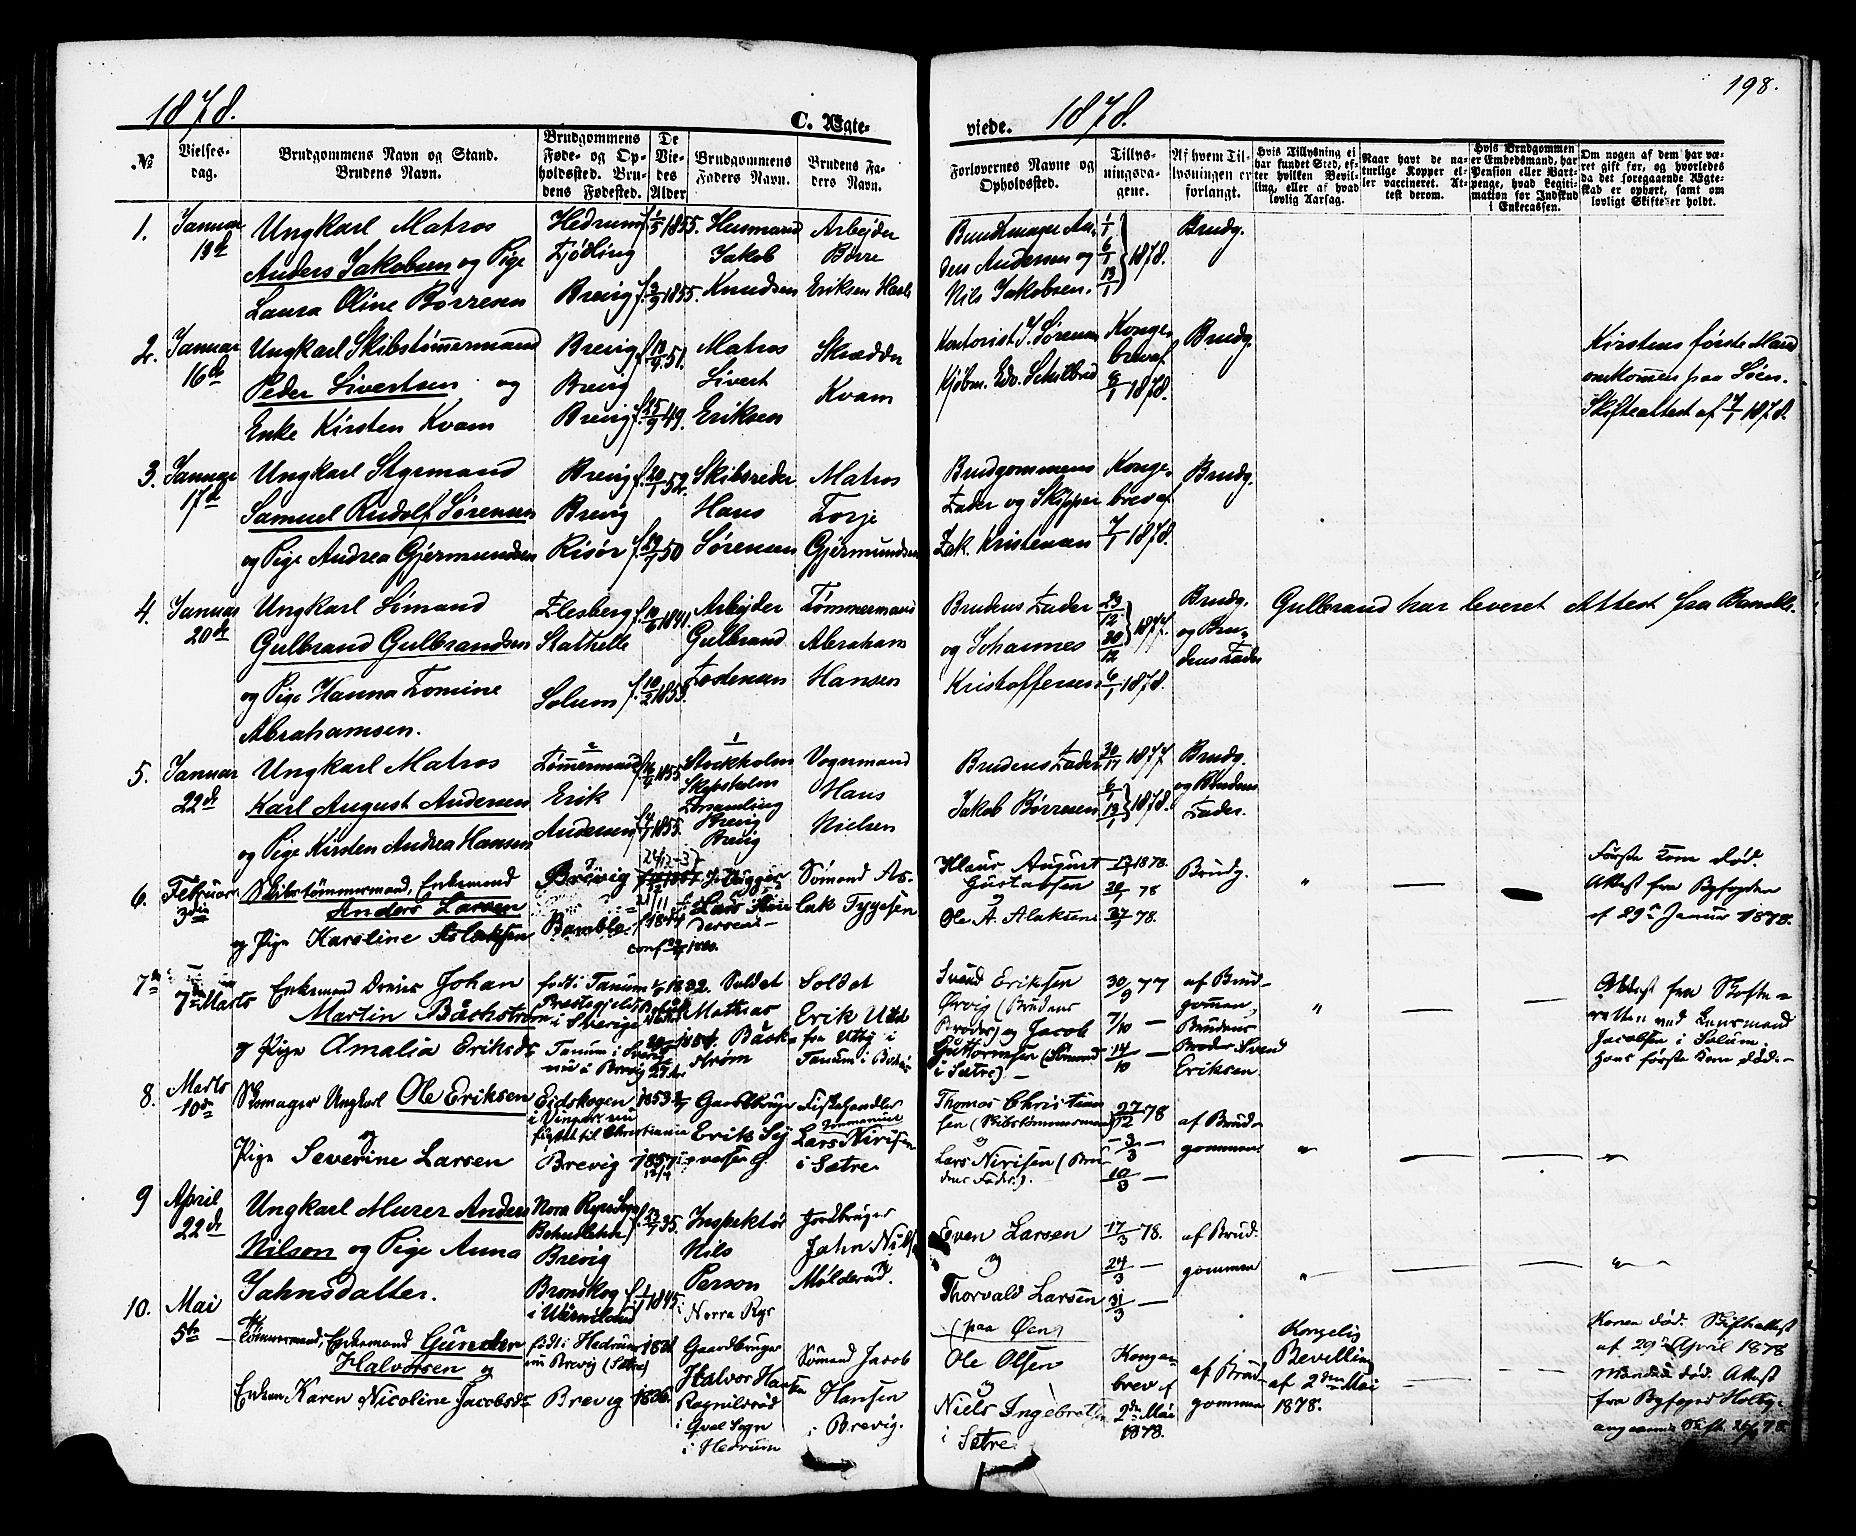 198.
1878.
C. Ægte-
viede.
1878.
№
Vielses-
dag.
Brudgommens Navn og Stand.
Brudens Navn.
Brudgommens
Føde- og Op-
holdssted. Bru-
dens Fødested.
De
Vie-
des
Alder
Brudgommens
Faders Navn.
Brudens Fa-
ders Navn.
Forlovernes Navne og
Opholdssted.
Tillys-
ningsda-
gene.
Af hvem Til-
lysningen er
forlangt.
Hvis Tillysning ei
har fundet Sted, ef-
ter hvilken Bevil-
ling, eller af hvad
lovlig Aarsag.
Naar havt de na-
turlige Kopper el-
ler vaccineret. At-
test derom.
Hvis Brudgommen
er Embedsmand, har
Pension eller Vart-
penge, hvad Legiti-
mation for Indskud
i Enkecassen.
Om nogen af dem har væ-
ret gift før, og hvorledes
da det foregaaende Ægte-
skab er ophørt, samt om
lovligt Skifte er holdt.
1.
Januar
13de
Ungkarl Matros
Anders Jakobsen og Pige
Laura Oline Børresen
Hedrum
Fjødling
Brevig
1/5 1855.
2/9 1855.
Husmand
Jakob
Knudsen
Arbejder
Børre
Eriksen
Buntmager An-
ders Andersen og
Nils Jakobsen.
1/1
6/1
13/1
1878.
Brudg.
2.
Januar
16de
Ungkarl Skibstømmermand
Peder Sivertsen og
Enke Kirsten Kvam
Brevig
Brevig
Brevig
51.
25/9 49.
Matros
Sivert
Eriksen
Skrædder
Kvam
Kontorist J. Sørensen
Kjøbm. Edv. Schilbred
Konge-
brev af
8/1 1878.
Brudg.
Kirstens første Mand
omkommen paa Søen.
Skifteattest af 7/1 1878.
3.
Januar
17de
Ungkarl Styrmand
Samuel Rudolf Sørensen
og Pige Andrea Gjermundsen
Brevig
Brevig
Risør
f. 20/1 52.
50
Skibsreder
Hans
Sørensen
Matros
Terje
Gjermundsen
Brudgommens
Fader og Skipper
Zak. Kristensen
Konge-
brev af
7/1 1878.
Brudg.
4
Januar
20de
Ungkarl Sømand
Gulbrand Gulbrandsen
og Pige Hanna Tomine
Abrahamsen.
Flesberg
Stathelle
Solum
1841.
f. 10/2 1855.
Arbejder
Gulbrand
Tostensen
Tømmermand
Abraham
Hansen
Brudens Fader
og Johannes
Kristoffersen
23/12
30/12
1877.
6/1 1878.
Brudg.
og Bru-
dens Fader
Gulbrand har leveret Attest fra Bamble.
5.
Januar
22de
Ungkarl Matros
Karl August Andersen
og Pige Kirsten Andrea Hansen
Tømmermand
Erik
Andersen
1855
1855.
Stockholm
Skeppsholm
Forsamling
Brevig
Brevig
Vognmand
Hans
Nielsen
Brudens Fader
Jakob Børresen
30/12 1877
6/1
13/1
1878.
Brudg.
og Brudens
Fader.
6.
Februar
3die
Skibstømmermand, Enkemand
Anders Larsen
og Pige Karoline Aslaksen
Brevig
Bamble
1844
Lars
Sømand As-
lak Tygesen
Klaus August
Gustavsen
og
Ole A. Alaksen
13/1 1878.
20/1 78
27/1 78.
Brudg.
„
—
Første Kone død.
Attest fra Byfogden
af 29de Januar 1878.
7de
7de Marts
Enkemand Johan
Martin Bäckström
og Pige Amalia Eriksdr
født i Tanum
Præstegjeld
i Sverige
Tanum i Sverig
nu i Brevig
1832
Soldat
Mathias
Bäck-
ström
Soldat
Erik
fra Utby i
Tanum i
Svend Eriksen
(Brudens
Broder) og Jacob
Guttormsen (Sømand
i Sætre)
30/9 77
7/10 —
14/10 —
af Brud-
gommen,
Brudens
Broder Svend
Eriksen
„
—
—
Attest fra Skifte-
retten ved Lensmand
Jacobsen i Solum.
Hans første Kone døde.
8.
Marts
10de
Skomager Ungkarl Ole Eriksen
og
Pige Severine Larsen
Eidskogen
i Vinger nu
flyttet til Christiania
Brevig
1853
1857
Gaardbruger
Erik
Fiskehandler
Lars Nirisen
i Sætre
Thomas Christian
sen (Skibstømmermand)
og
Lars Nirisen (Bru
dens Fader).
78
3/3 —
10/3 —
af Brud-
gommen
„
—
—
„
9
April
22de
Ungkarl Murer Anders
Nilson og Pige Anna
Jahnsdatter.
Nora
Brevig
Brunskog
i Wärmeland
35.
1845.
Inspektør
Nils
Person
i Norra
Jordbruger
Jahn Nils
Mølderud.
Even Larsen
og
Thorvald Larsen
(paa Øen)
17/3 78.
24/3 —
31/3 —
af Brud-
gommen
„
—
—
„
10.
Mai
5te
Tømmermand, Enkemand Gunder
Halvorsen og
Enken Karen Nicoline Jacobsdr
født i Hedrum
nu Brevig (Sætre)
Brevig
1836.
Gaardbruger
Halvor Hansen
i Qvel Sogn
i Hedrum
Sømand Jacob
Hansen
i Brevig.
Ole Olsen
og
Niels Ingebretsen
i Sætre
Konge-
brev af
2den Mai
1878.
af Brud-
gommen
Kongelig
Bevilling
af 2den Mai
1878.
—
—
Konen død. Skifteattest
af 29de April 1878
Manden død. Attest
fra Byfoged